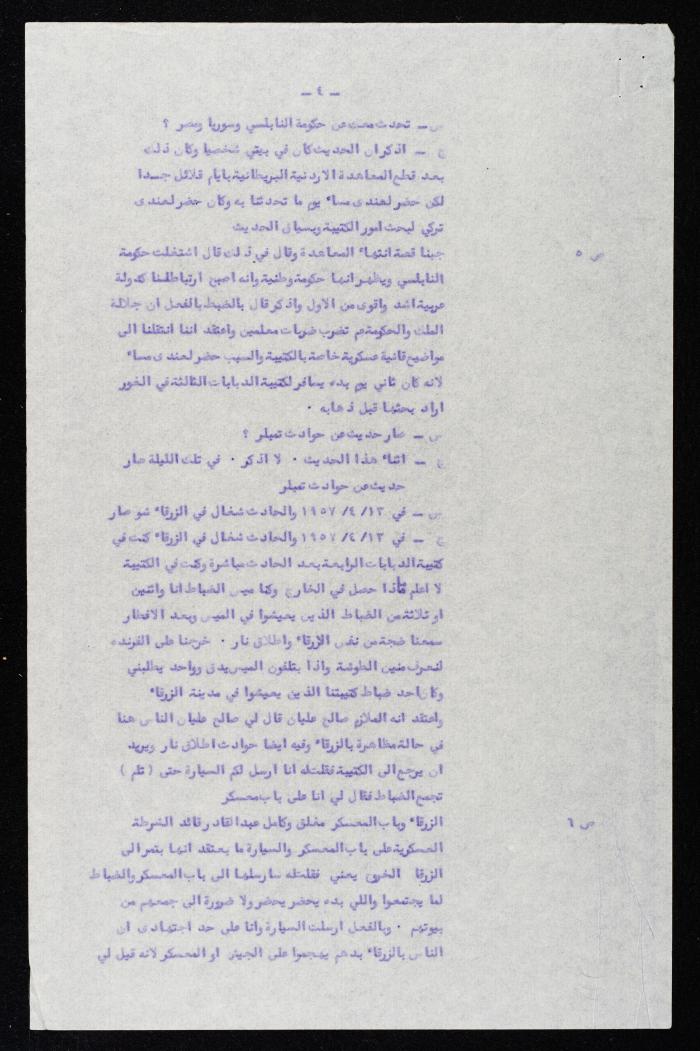 ـ ٤ ـ
س ـ تحدث معك عن حكومة النابلسي وسوريا ومصر ؟
ج ـ اذكر ان الحديث كان في بيتي شخصيا وكان ذلك
بعد قطع المعاهدة الاردنية البريطانية بايام قلائل جدا
لكن حضر لعندي مساء يوم ما تحدثنا به وكان حضر لعندي
تركي لبحث امور الكتيبة وبسياق الحديث
جبنا قصة انتهاء المعاهدة وقال في ذلك قال اشتغلت حكومة
ص ٥
النابلسي ويظهر انها حكومة وطنية وانه اصبح ارتباطنا كدولة
عربية اشد واقوى من الاول واذكر قال بالضبط بالفعل ان جلالة
الملك والحكومة عم تضرب ضربات معلمين واعتقد اننا انتقلنا الى
مواضيع ثانية عسكرية خاصة بالكتيبة والسبب حضر لعندي مساء
لانه كان ثاني يوم بده يسافر لكتيبة الدبابات الثالثة في الغور
اراد بحثها قبل ذهابه .
س ـ صار حديث عن حوادث تمبلر ؟
ج ـ اثناء هذا الحديث . لا اذكر . في تلك الليلة صار
حديث عن حوادث تمبلر
س ـ في ١٣/ ٤/ ١٩٥٧ والحادث شغال في الزرقاء شو صار
ج ـ في ١٣/ ٤/ ١٩٥٧ والحادث شغال في الزرقاء كنت في
كتيبة الدبابات الرابعة بعد الحادث مباشرة وكنت في الكتيبة
لا اعلم ماذا حصل في الخارج وكنا ميس الضباط انا واثنين
او ثلاثة من الضباط الذين يعيشوا في الميس وبعد الافطار
سمعنا ضجة من نفس الزرقاء واطلاق نار . خرجنا على الفرنده
لنعرف منين الطوشة واذا بتلفون الميس يدق وواحد يطلبني
وكان احد ضباط كتيبتنا الذين يعيشوا في مدينة الزرقاء
واعتقد انه الملازم صالح عليان قال لي صالح عليان الناس هنا
في حالة مظاهرة بالزرقاء وفيه ايضا حوادث اطلاق نار ويريد
ان يرجع الى الكتيبة فقلت له انا ارسل لكم السيارة حتى ( تلم )
تجمع الضباط فقال لي انا على باب معسكر
الزرقاء وباب المعسكر مغلق وكامل عبد القادر قائد الشرطة
ص ٦
العسكرية على باب المعسكر والسيارة ما يعتقد انها بتمر الى
الزرقا يعني فقلت له سارسلها الى باب المعسكر والضباط
لما يجتمعوا واللي بده يحضر يحضر ولا ضرورة الى جمعهم من
بيوتهم . وبالفعل ارسلت السيارة وانا على حد اجتهادي ان
الناس بالزرقاء بدهم يهجموا على الجيش او المعسكر لانه قيل لي